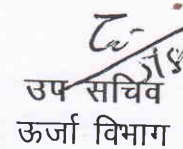 उप सचिव
ऊर्जा विभाग